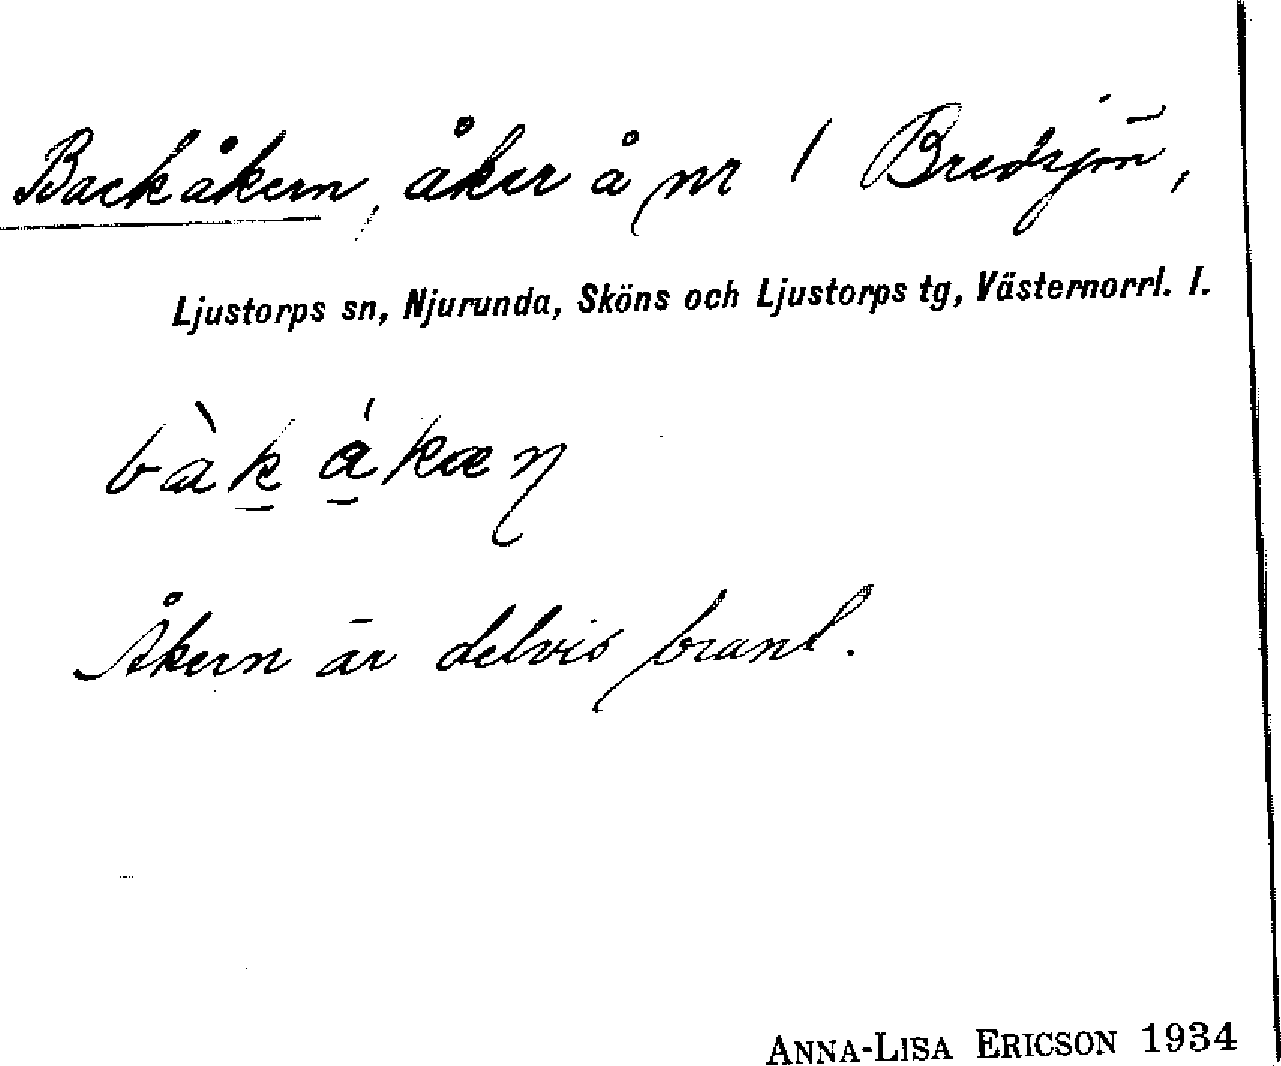 Backåkern, åker å nr 1 Bredsjön,
Ljustorps sn, Njurunda, Sköns och Ljustorps tg, Västernorrl. l.
bàk ákæn
Åkern är delvis brant.
ANNA-LISA ERICSON 1934